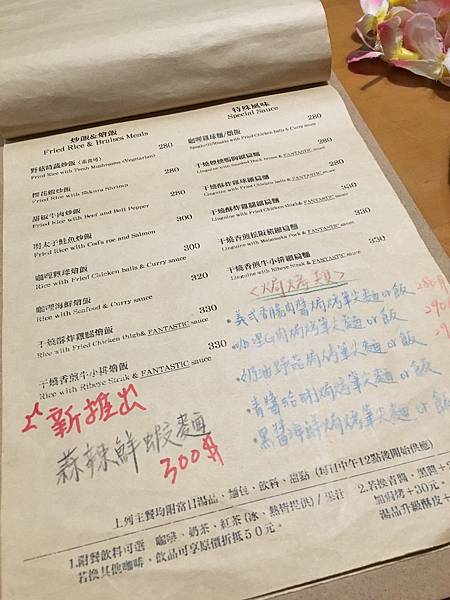 炒飯&燴飯
Fried Rice & Braises Meals
野菇時蔬炒飯 (蛋奶可) 280
Fried Rice with Fresh Mushrooms (Vegetarian)
櫻花蝦炒飯 280
Fried Rice with Sakura Shrimp
甜椒牛肉炒飯 300
Fried Rice with Beef and Bell Pepper
明太子鮭魚炒飯 300
Fried Rice with Cod's roe and Salmon
咖哩雞球燴飯 320
Rice with Fried Chicken balls & Curry sauce
咖哩海鮮燴飯 330
Rice with Seafood & Curry sauce
干燒酥炸雞腿燴飯 330
Rice with Fried Chicken thigh& FANTASTIC sauce
干燒香煎牛小排燴飯 390
Rice with Ribeye Steak & FANTASTIC sauce
特殊風味
Special Sauce
咖哩雞球麵/燉飯 280
Spaghetti/Risotto with Fried Chicken balls & Curry sauce
干燒煙燻鴨胸細扁麵 280
Linguine with Smoked Duck breast & FANTASTIC sauce
干燒酥炸雞球細扁麵 280
Linguine with Fried Chicken balls & FANTASTIC sauce
干燒酥炸雞腿細扁麵 330
Linguine with Fried Chicken thigh& FANTASTIC sauce
干燒香煎松阪豬細扁麵 330
Linguine with Matsusaka Pork & FANTASTIC sauce
干燒香煎牛小排細扁麵 330
Linguine with Ribeye Steak & FANTASTIC sauce
<焗烤類>
•義式香腸肉醬焗烤筆尖麵or飯 280元
•咖哩心肉焗烤筆尖麵or飯 290
•奶油野菇焗烤筆尖麵or飯 29
•青醬蛤蜊焗烤筆尖麵or飯
•墨醬海鮮焗烤筆尖麵or飯
新推出
蒜辣鮮蝦麵 300元
上列主餐均附當日湯品、麵包、飲料、甜點 (每日中午12點後開始供應)
1.附餐飲料可選 咖啡、奶茶、紅茶(冰、熱皆提供)/果汁
若換其他咖啡、飲品可享原價折抵50元。
2.若換青醬、墨醬+2
加焗烤+30元。
湯品升級酥皮+